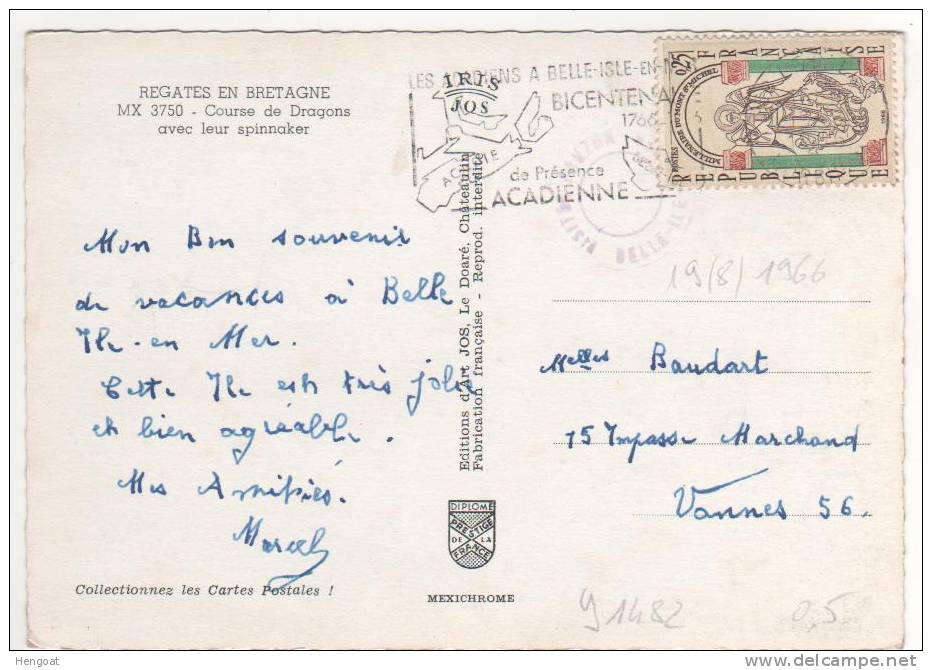 REGATES EN BRETAGNE
MX 3750 - Course de Dragons
avec leur spinnaker
LES ACADIENS A BELLE-ISLE-EN-M
BICENTENA
1766
de Présence
ACADIENNE
ACADIE
IRIS
JOS
REPUBLIQUE
FRANCAISE
0,25
MILLENAIRE DU MONT ST MICHEL
POSTES
1966
BELLE-ILE
19/8/1966
Mon Bon souvenir
de vacances à Belle
Ile-en Mer.
Cette Ile est très jolie
et bien agréable.
Mes Amitiés.
Marcel
Editions d'Art JOS, Le Doaré, Châteaulin
Fabrication française - Reprod. interdite
Melles Baudart
15 Impasse Marchand
Vannes 56.
DIPLOME
PRESTIGE
DE LA
FRANCE
MEXICHROME
Collectionnez les Cartes Postales !
y 1482
0,5
Hengoat
delcampe.net